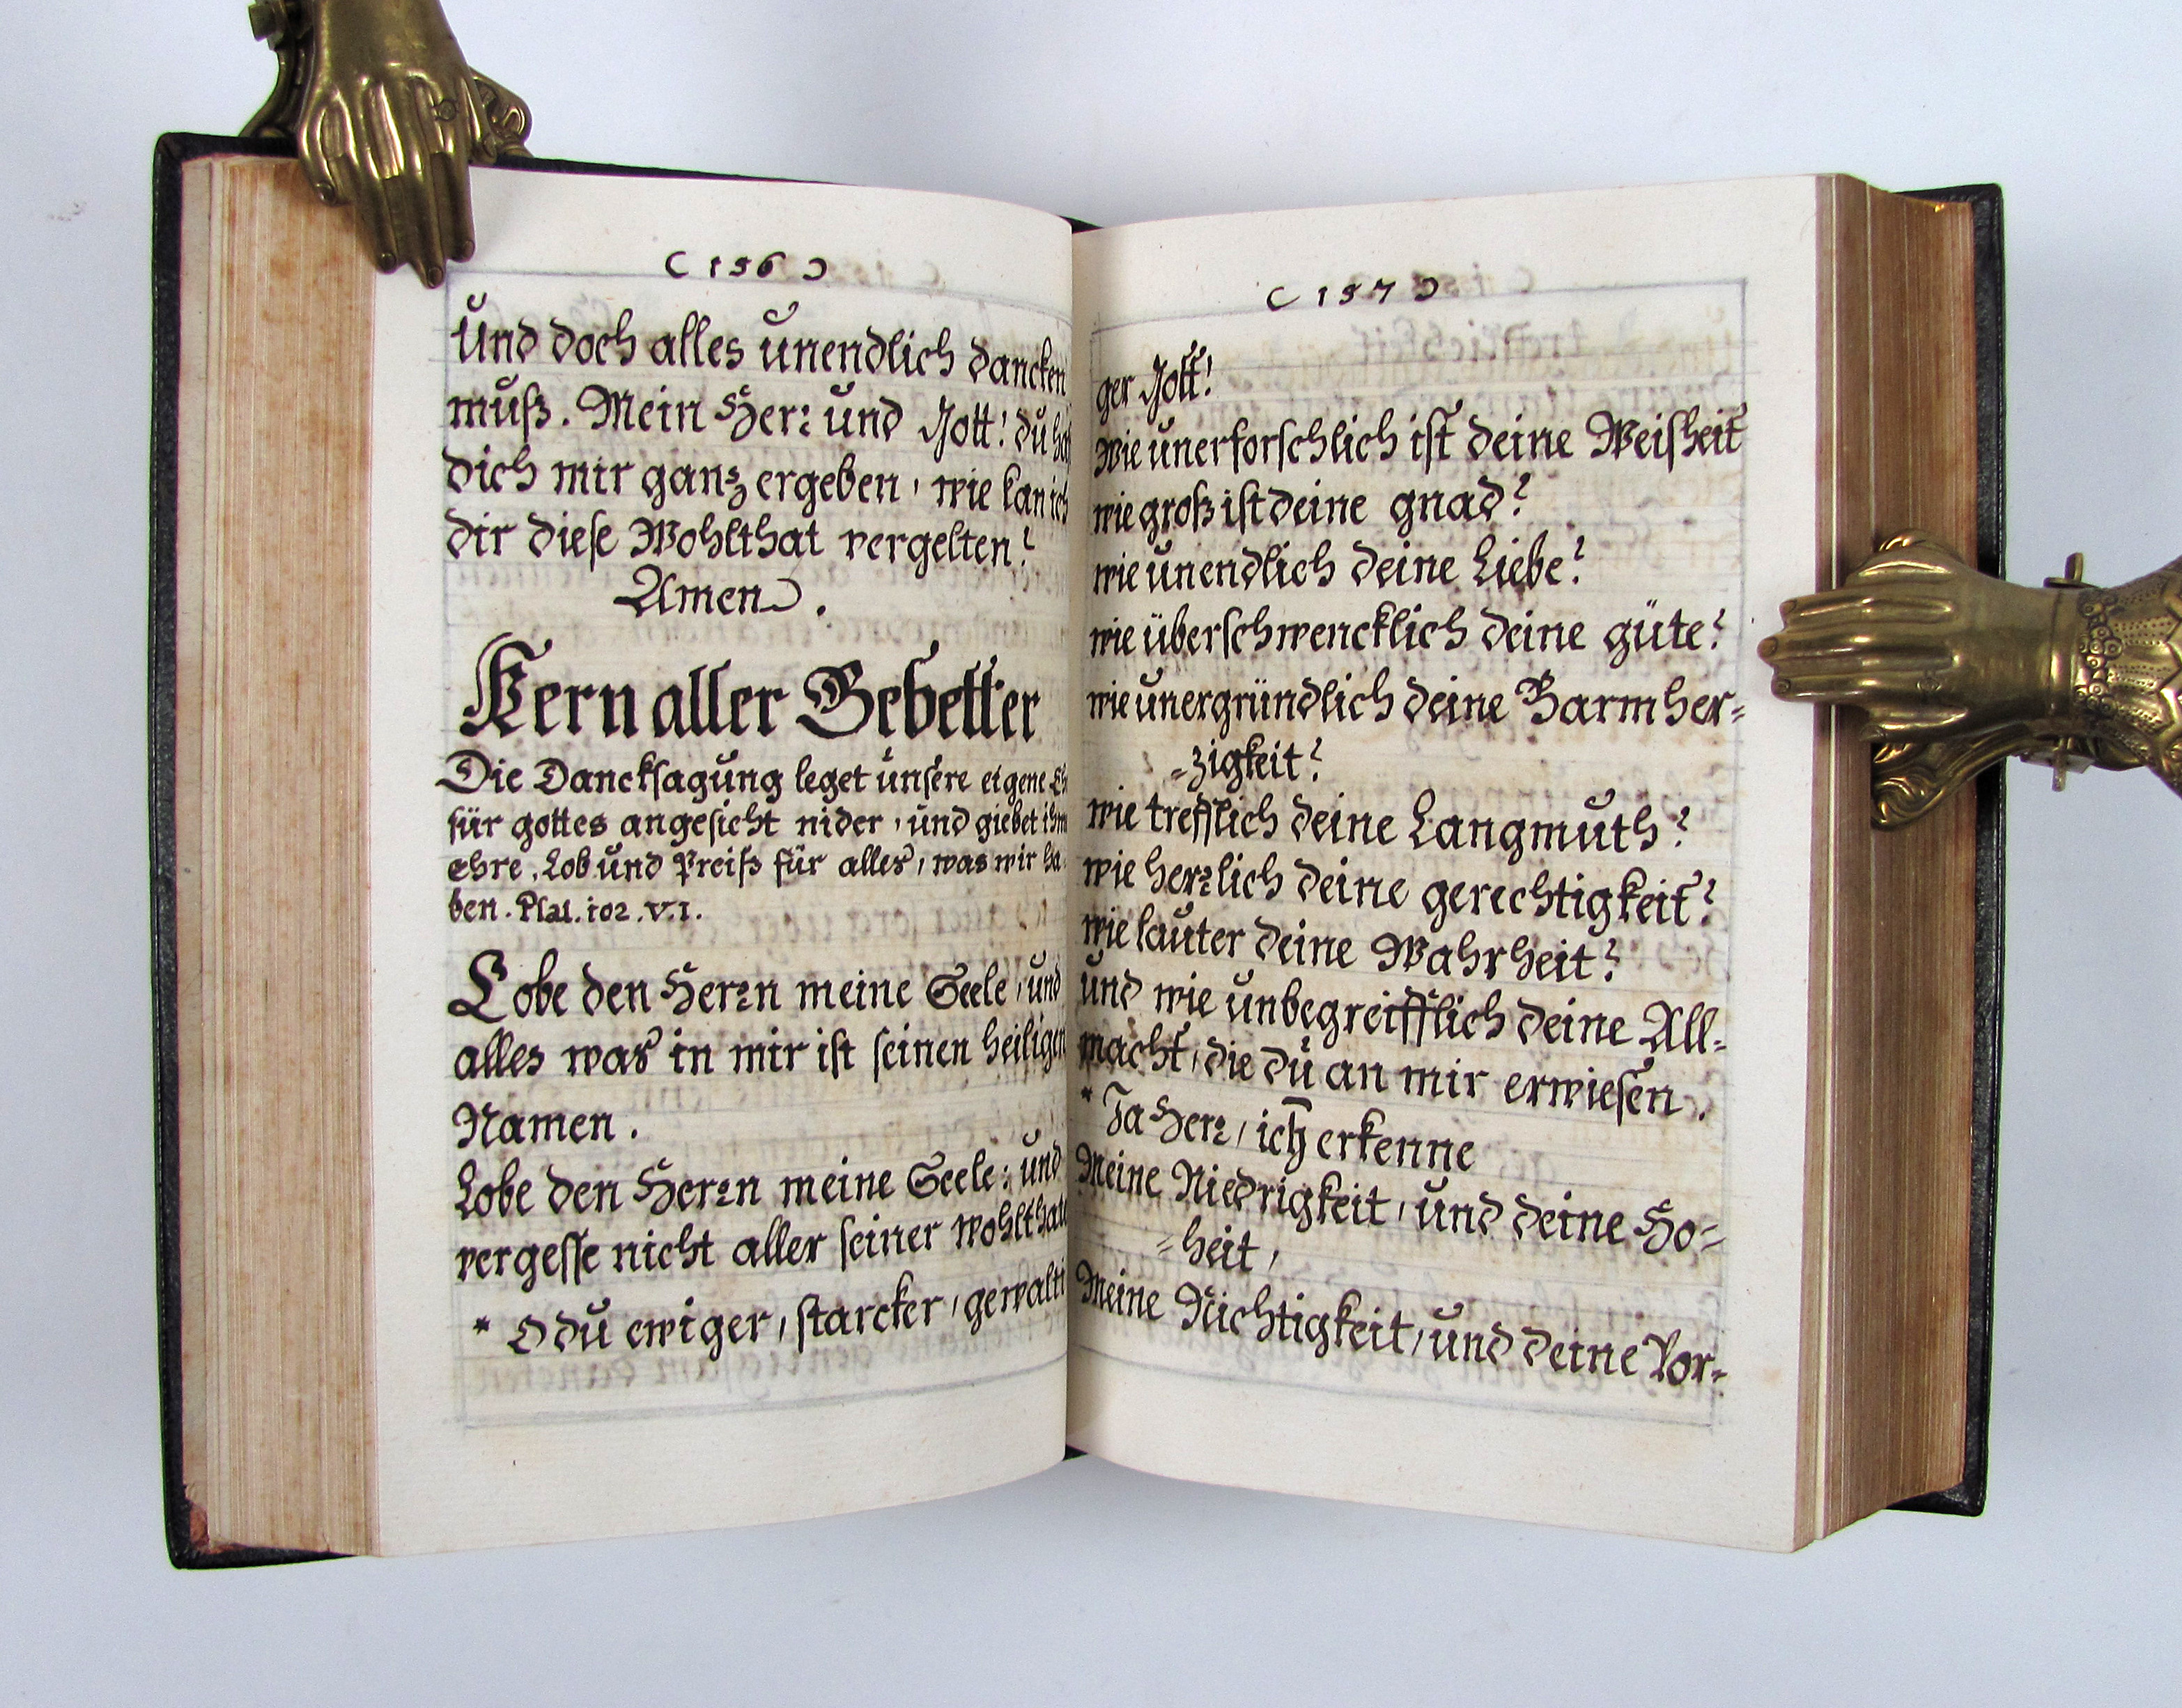 ( 156 )
Und doch alles unendlich dancken
muß. Mein Herr und Gott! du
dich mir ganz ergeben, wie kan ich
dir diese Wohlthat vergelten?
Amen.
Kern aller Gebetter
Die Dancksagung leget unsere eigene
für gottes angesicht nider, und giebet ihm
ehre, Lob und Preiß für alles, was wir ha-
ben. Psal. 102. V. 1.
Lobe den Herrn meine Seele, und
alles was in mir ist seinen heiligen
Namen.
Lobe den Herrn meine Seele; und
vergesse nicht aller seiner wohlthat
* O du ewiger, starcker, gewalti
( 157 )
ger Gott!
Wie unerforschlich ist deine Weisheit
wie groß ist deine gnad?
wie unendlich deine Liebe?
wie überschwencklich deine güte?
wie unergründlich deine Barmher=
=zigkeit?
wie trefflich deine Langmuth?
wie herrlich deine gerechtigkeit?
wie lauter deine Wahrheit?
und wie unbegreifflich deine All-
macht, die du an mir erwiesen.
* Ja Herr, ich erkenne
Meine Niedrigkeit, und deine Ho=
=heit,
Meine Nichtigkeit, und deine Vor=